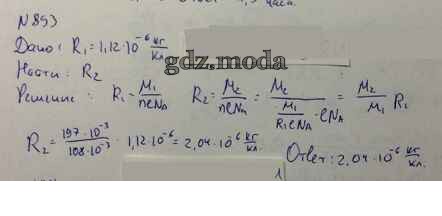 N 893
Дано: R₁ = 1,12·10⁻⁶ кг/Кл
gdz.moda
Найти: R₂
Решение: R₁ = M₁/neNA R₂ = M₂/neNA = M₂/(M₁/R₁eNA · eNA) = M₂/M₁ R₁
R₂ = 197·10⁻³/108·10⁻³ · 1,12·10⁻⁶ = 2,04·10⁻⁶ кг/кл. Ответ: 2,04·10⁻⁶ кг/кл.